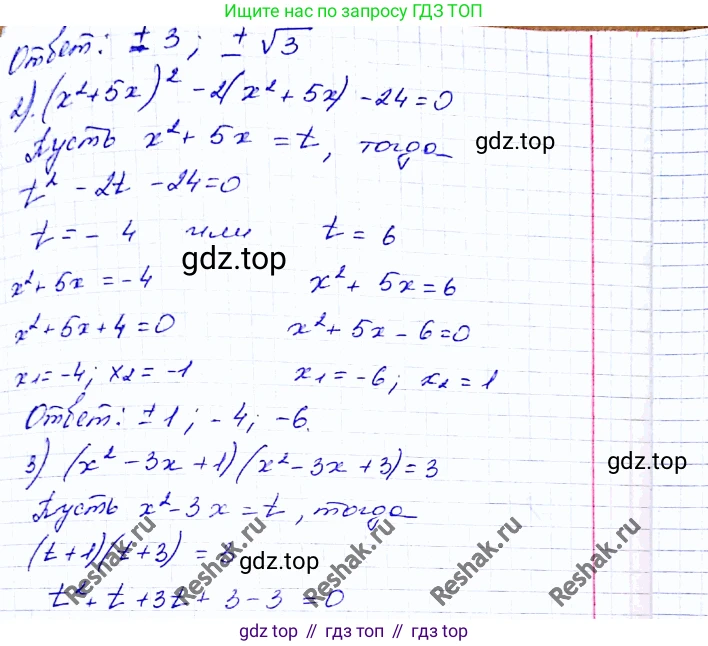 Ищите нас по запросу ГДЗ ТОП
Ответ: ± 3 ; ± √3
2). (x² + 5x)² - 2(x² + 5x) - 24 = 0
Пусть x² + 5x = t, тогда
gdz.top
t² - 2t - 24 = 0
t = - 4 или t = 6
gdz.top
x² + 5x = -4 x² + 5x = 6
x² + 5x + 4 = 0 x² + 5x - 6 = 0
x1 = -4; x2 = -1 x1 = -6; x2 = 1
Ответ: ± 1; - 4; -6.
3) (x² - 3x + 1) (x² - 3x + 3) = 3
gdz.top
Пусть x² - 3x = t, тогда
(t + 1) (t + 3) = 3
gdz.top
t² + t + 3t + 3 - 3 = 0
Reshak.ru Reshak.ru Reshak.ru Reshak.ru Reshak.ru
gdz top // гдз топ // gdz top // гдз топ